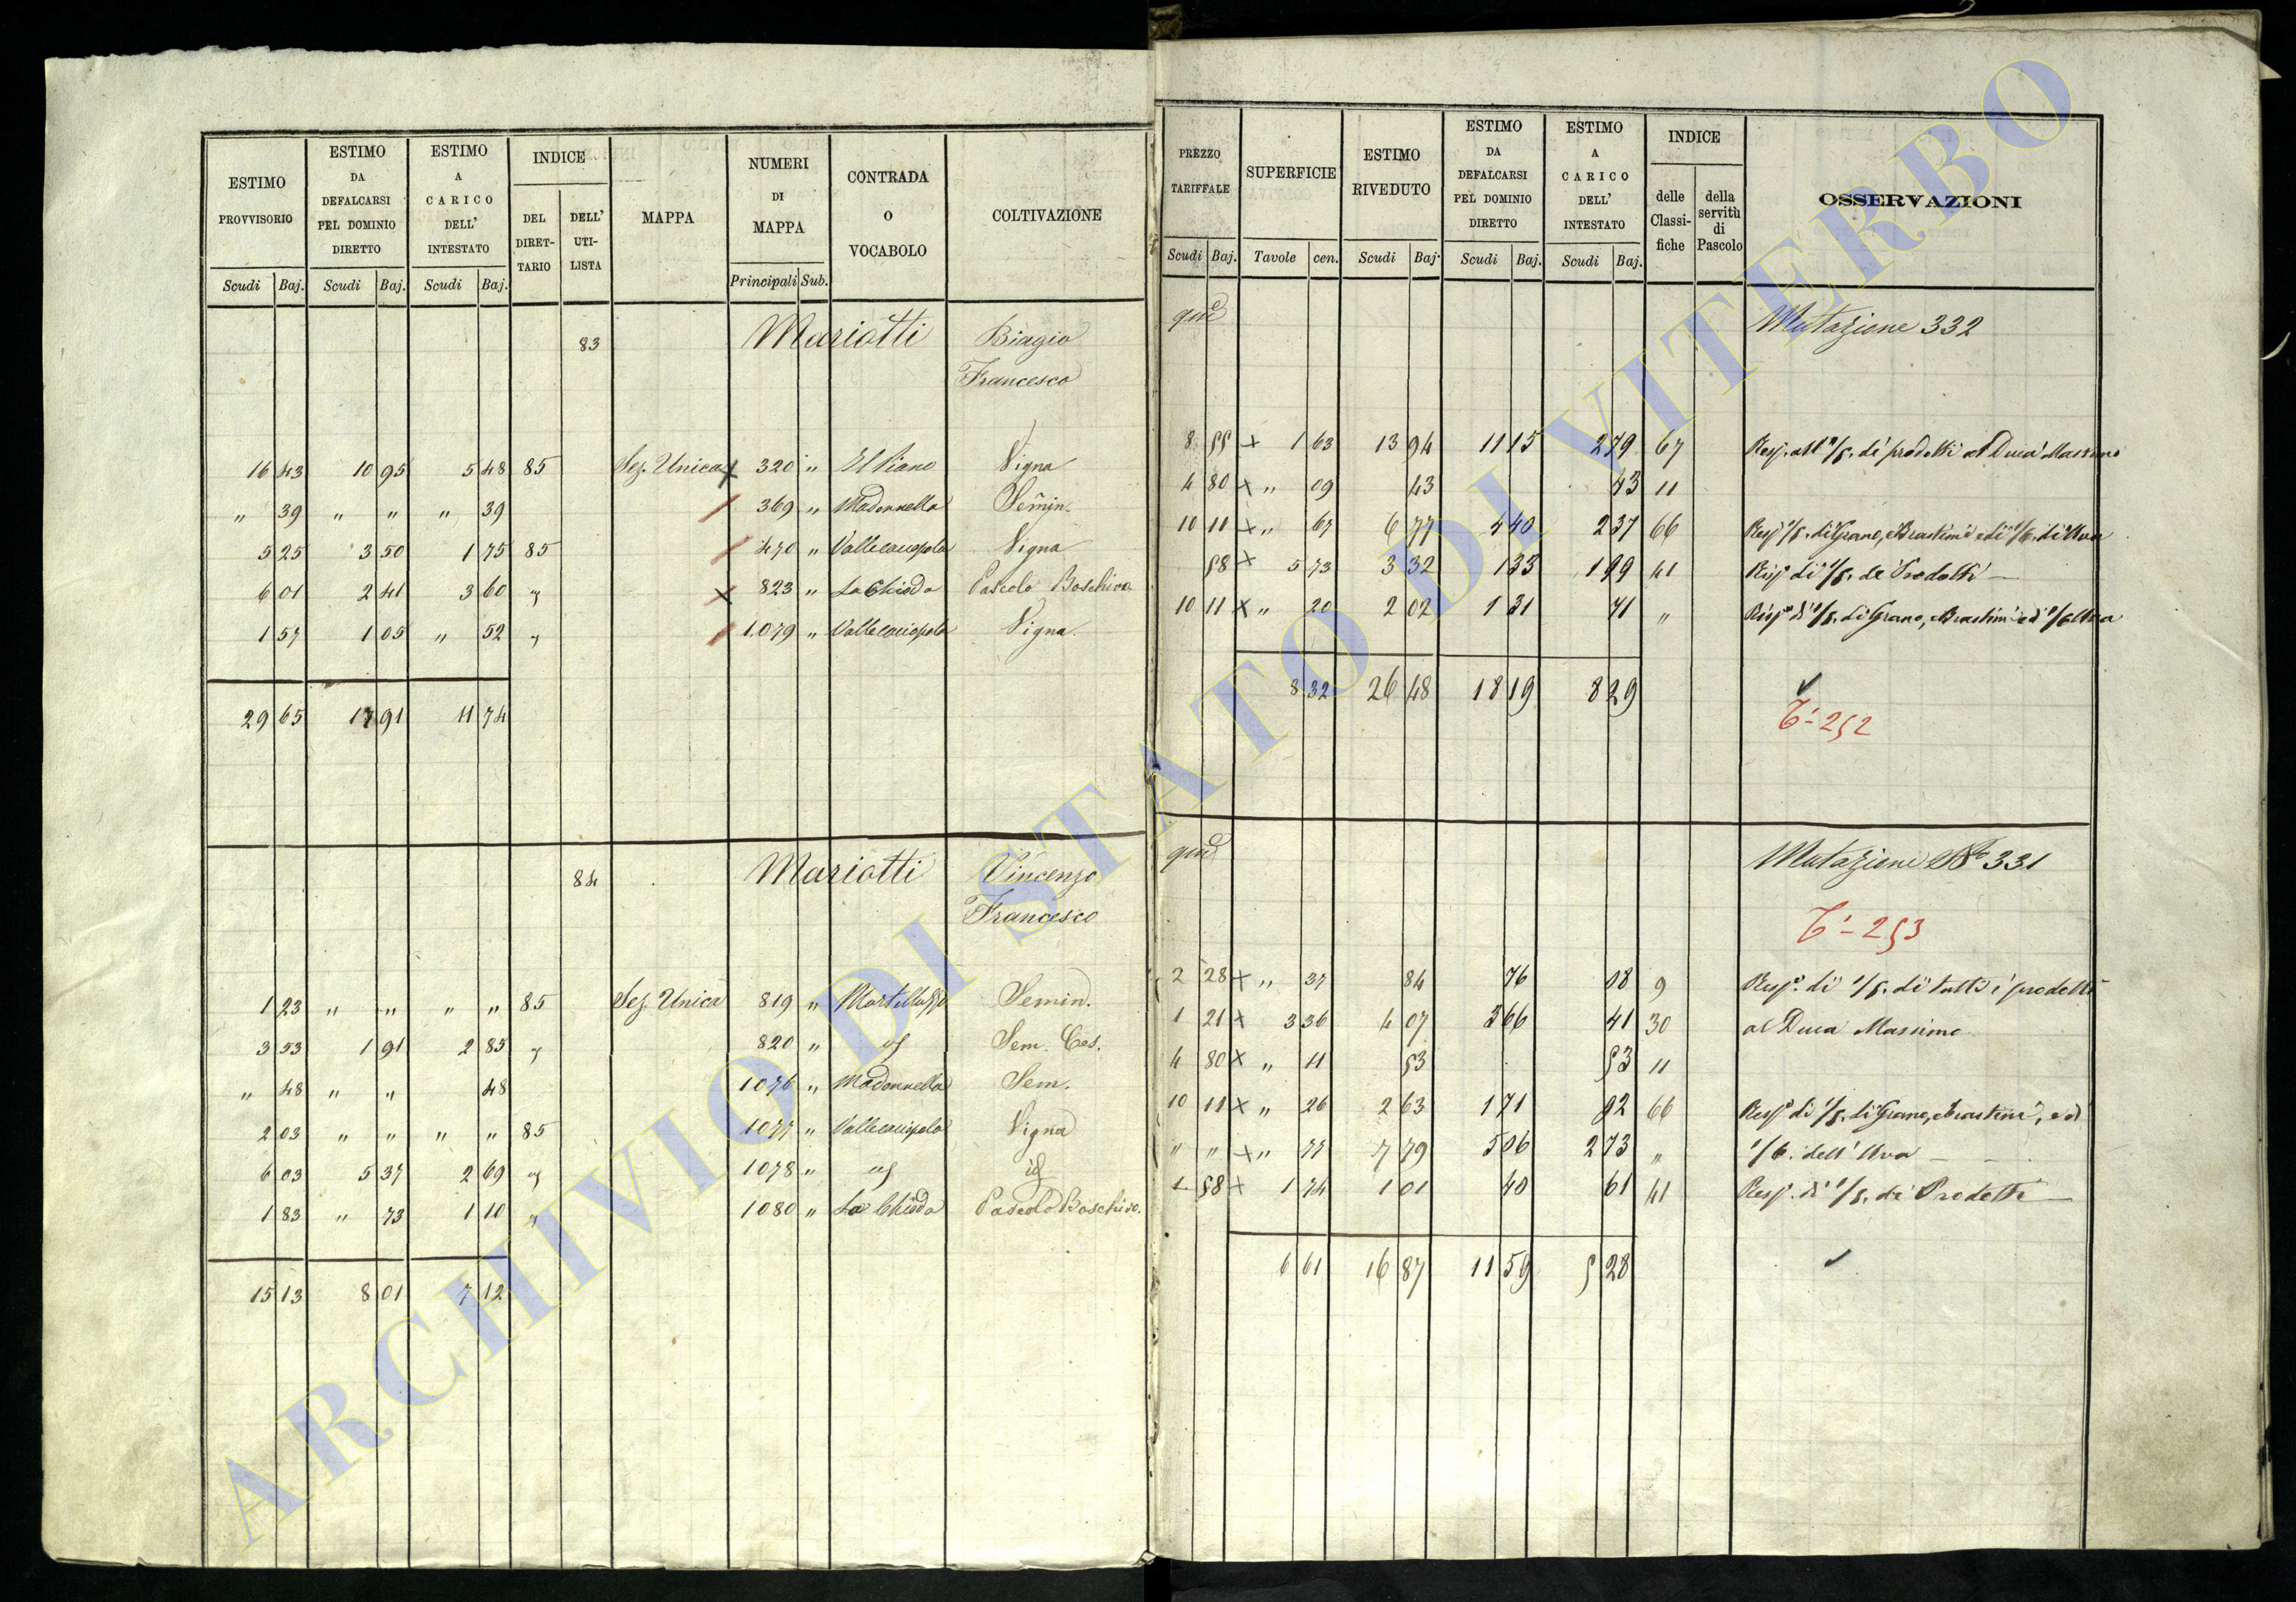 ESTIMO PROVVISORIO | ESTIMO DA DEFALCARSI PEL DOMINIO DIRETTO | ESTIMO A CARICO DELL' INTESTATO | INDICE | MAPPA | NUMERI DI MAPPA | CONTRADA O VOCABOLO | COLTIVAZIONE
DEL DIRETTARIO | DELL' UTILISTA
Scudi | Baj. | Scudi | Baj. | Scudi | Baj. | Principali | Sub.
83 Mariotti Biagio
Francesco
16 43 10 95 5 48 85 Sez. Unica 320 " Il Piano Vigna
" 39 " " " 39 369 " Madonnella Semin.
5 25 3 50 1 75 85 470 " Vigna
6 01 2 41 3 60 " 823 " La Chioda Pascolo Boschivo
1 57 1 05 " 52 " 1079 " Vigna
29 65 17 91 11 74
84 Mariotti Vincenzo
Francesco
1 23 " " " " 85 Sez. Unica 819 " Semin.
3 53 1 91 2 85 " 820 " Sem. Ces.
" 48 " " 48 1076 " Madonnella Sem.
2 03 " " " " 85 1077 " Vigna
6 03 5 37 2 69 1078 "
1 83 " 73 1 10 " 1080 " La Chioda Pascolo Boschivo.
15 13 8 01 7 12
PREZZO TARIFFALE | SUPERFICIE | ESTIMO RIVEDUTO | ESTIMO DA DEFALCARSI PEL DOMINIO DIRETTO | ESTIMO A CARICO DELL' INTESTATO | INDICE | OSSERVAZIONI
delle Classifiche | della servitù di Pascolo
Scudi | Baj. | Tavole | cen. | Scudi | Baj. | Scudi | Baj. | Scudi | Baj.
Mutazione 332
8 55 x 1 63 13 94 11 15 2 79 67 di prodotti al Duca Massimo
4 80 x " 09 43 43 11
10 11 x " 67 6 77 4 40 2 37 66 Risp. 1/5. di Grano, e di 1/6. di Uva
58 x 5 73 3 32 1 33 1 99 41 Risp. di 1/5. de Prodotti
10 11 x " 20 2 02 1 31 71 " Risp. di 1/5. di Grano,
8 32 26 48 18 19 8 29
- 252
Mutazione No 331
- 253
2 28 x " 37 84 76 08 9 Risp. di 1/5. di tutti i prodotti
1 21 x 3 36 4 07 3 66 41 30 al Duca Massimo
4 80 x " 11 53 53 11
10 11 x " 26 2 63 1 71 92 66 Risp. di 1/5. di Grano, ed
" " x " 77 7 79 5 06 2 73 " 1/6. dell' Uva
58 x 1 74 1 01 40 61 41 Risp. di 1/5. di Prodotti
6 61 16 87 11 59 5 28
ARCHIVIO DI STATO DI VITERBO